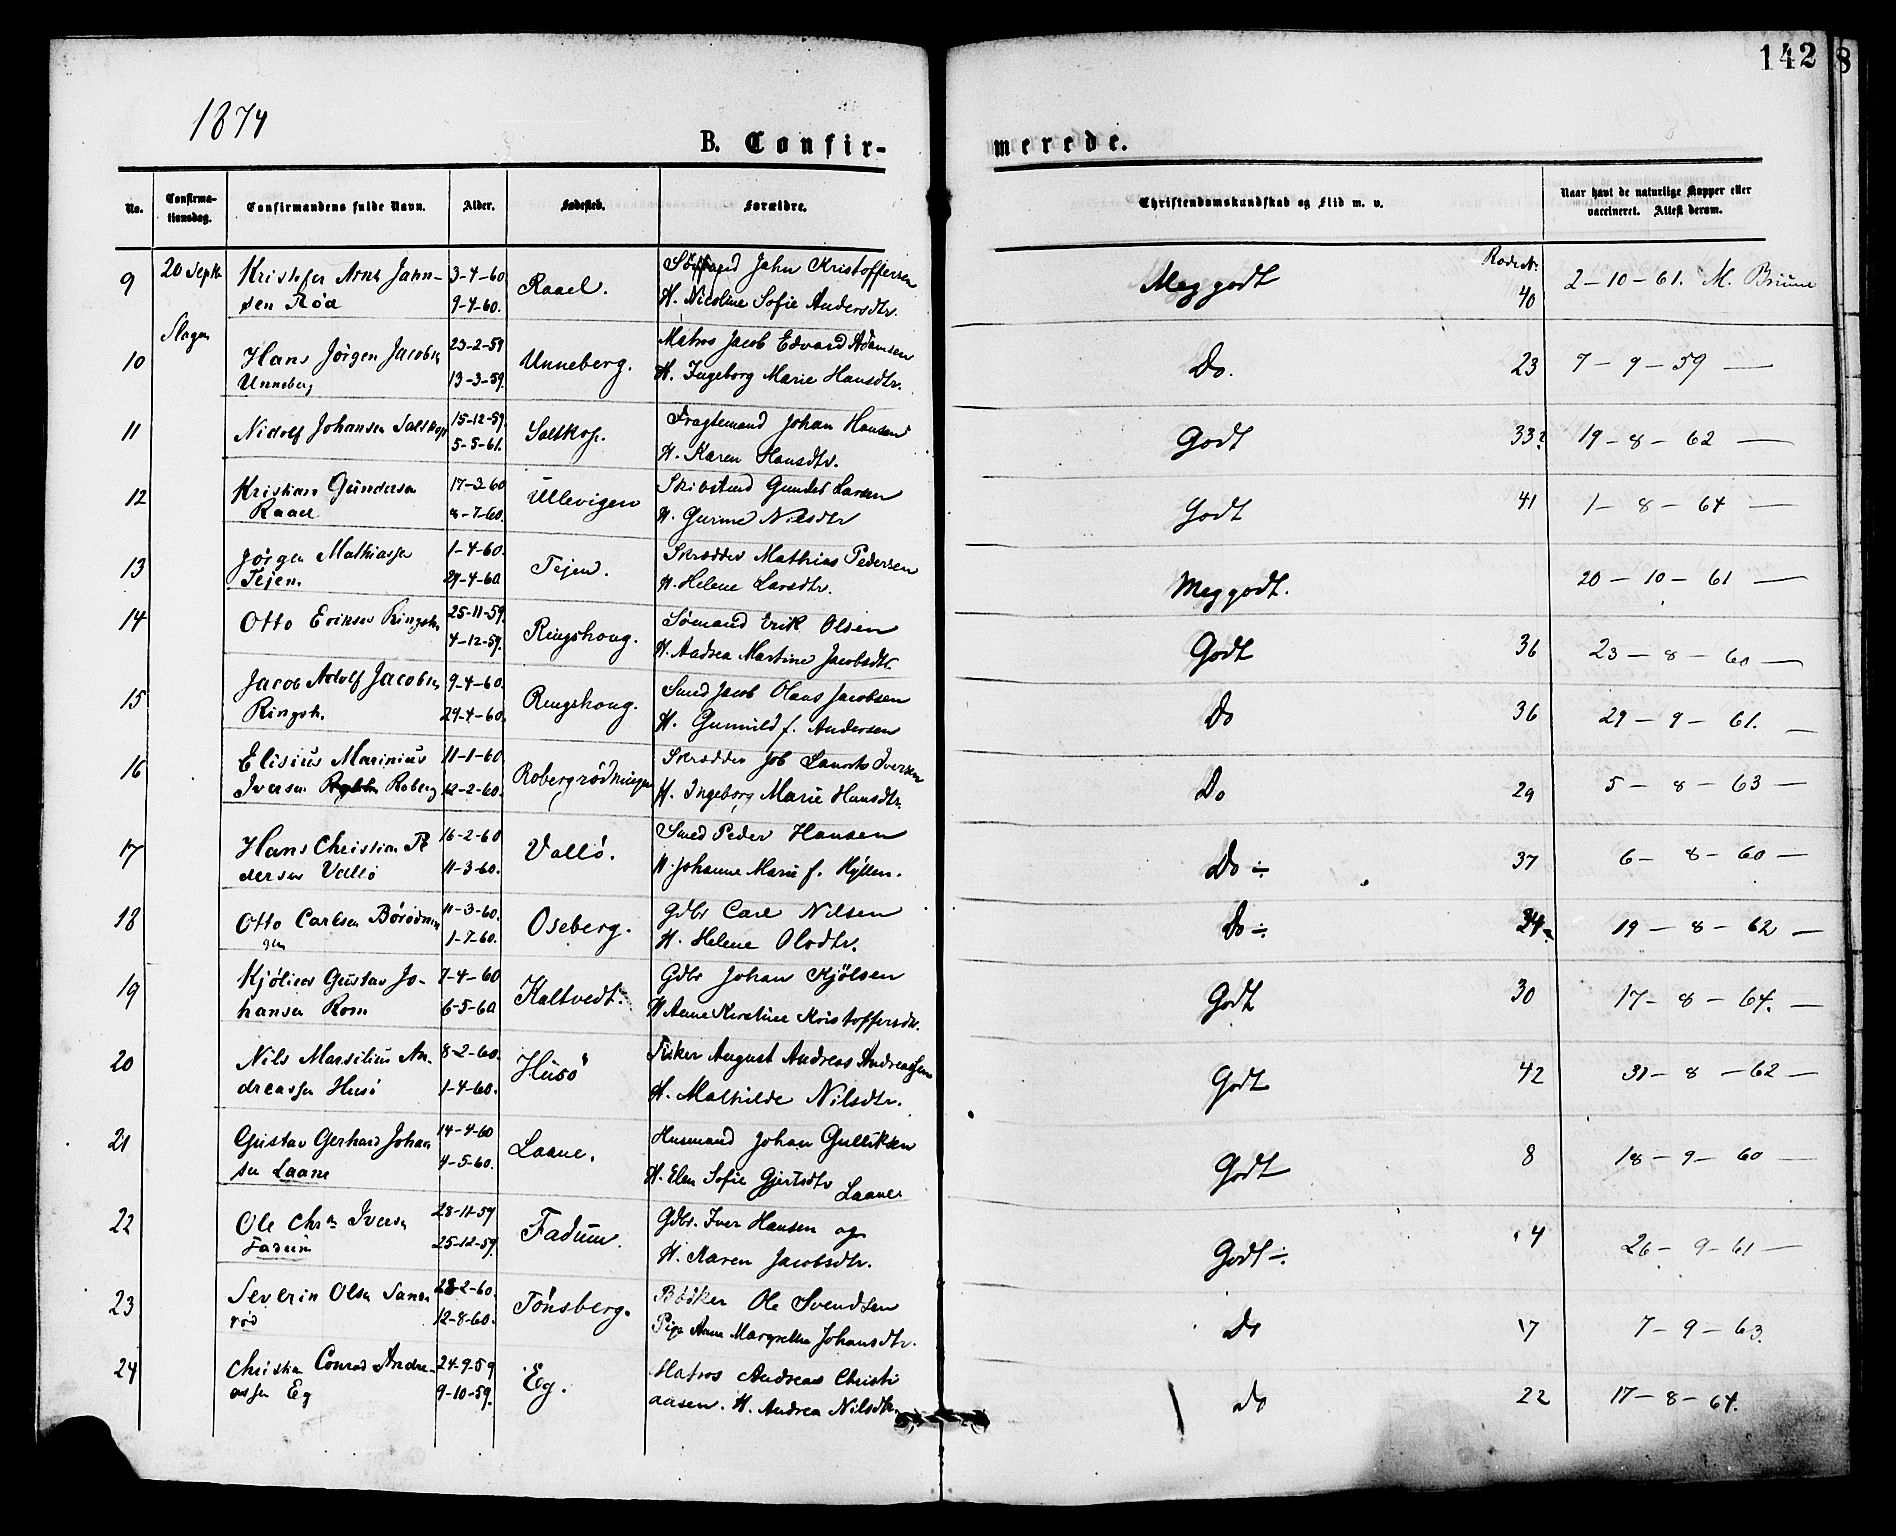 142
8
1874
B. Confir-
merede.
No.
Confirma-
tionsdag.
Confirmandens fulde Navn.
Alder.
Fødested.
Forældre.
Christendomskundskab og Flid m. v.
Naar havt de naturlige Kopper eller
vaccineret. Attest derom.
9 20 Sept. Kristofer Arnt Jahn- 3-4-60 Raael. Jahn Kristoffersen Meg godt 40 2-10-61. M. Briune
sen Rød 9-4-60. H. Nicoline Sofie Andersdtr.
Slagen
10 Hans Jørgen Jacobsen 23-2-59 Unneberg. Matros Jacob Edvard Adamsen Do. 23 7-9-59 —
Unneberg 13-3-59. H. Ingeborg Marie Hansdtr.
11 Nidolf Johansen Saltkop 15-12-59. Saltkop. Fragtemand Johan Hansen Godt 33? 19-8-62 —
5-5-61. H. Karen Hansdtr.
12 Kristian Gundersen 17-3-60 Ullevigen Gunder Larsen Godt 41 1-8-64 —
Raael 8-7-60. H. Gurine Nilsdtr
13 Jørgen Mathiassen 1-4-60. Tejen. Skrædder Mathias Pedersen Meg godt. 20-10-61 —
Tejen. 29-4-60. H. Helene Larsdtr.
14 Otto Eriksen Ringsh. 25-11-59. Ringshoug. Sømand Erik Olsen Godt 36 23-8-60 —
4-12-59. H. Andrea Martine Jacobsdtr.
15 Jacob Adolf Jacobsen 9-4-60. Ringshoug. Smed Jacob Olaus Jacobsen Do 36 29-9-61. —
Ringsh. 29-4-60. H. Gunnild f. Andersen
16 Elisius Marinius 11-1-60. Robergrødningen Skrædder Job Laurits Iversen Do 29 5-8-63 —
Iversen Roberg 12-2-60. H. Ingeborg Marie Hansdtr.
17 Hans Christian P 16-2-60 Vallø. Smed Peder Hansen Do ÷ 37 6-8-60 —
dersen Vallø 11-3-60. H. Johanne Marie f. Hyllen.
18 Otto Carlsen Børødnin 11-3-60. Oseberg. Gdbr Carl Nilsen Do ÷ 19-8-62 —
gen 1-7-60. H. Helene Olsdtr.
19 Kjølner Gustav Jo- 7-4-60 Kaltvedt. Gdbr Johan Kjølsen Godt 30 17-8-64. —
hansen Rom 6-5-60 H Anne Kirstine Kristoffersdtr.
20 Nils Marsilius An- 8-2-60. Husø Fisker August Andreas Andreassen Godt 42 31-8-62 —
dreassen Husø 1-4-60. H. Mathilde Nilsdtr.
21 Gustav Gerhard Johan 14-4-60 Laane. Husmand Johan Gulliksen Godt 8 18-9-60 —
sen Laane 4-5-60. H. Elen Sofie Gjertsdtr Laane
22 Ole Chr. Iversen 28-11-59 Fadum. Gdbr. Iver Hansen og Godt ÷ 4 26-9-61 —
Fadum 25-12-59. H. Karen Jacobsdtr.
23 Severin Olsen Sande 28-2-60. Tønsberg. Bødker Ole Svendsen Do 7 7-9-63.
rød 12-8-60. Pige Anne Margrethe Johansdtr.
24 Christian Conrad Andre- 24-9-59 Eg. Matros Andreas Christi Do 22 17-8-64.
assen Eg 9-10-59. ansen. H. Andrea Nilsdtr.